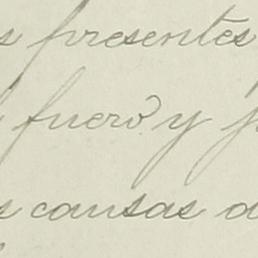 s presentes
fuero y j
s causas d